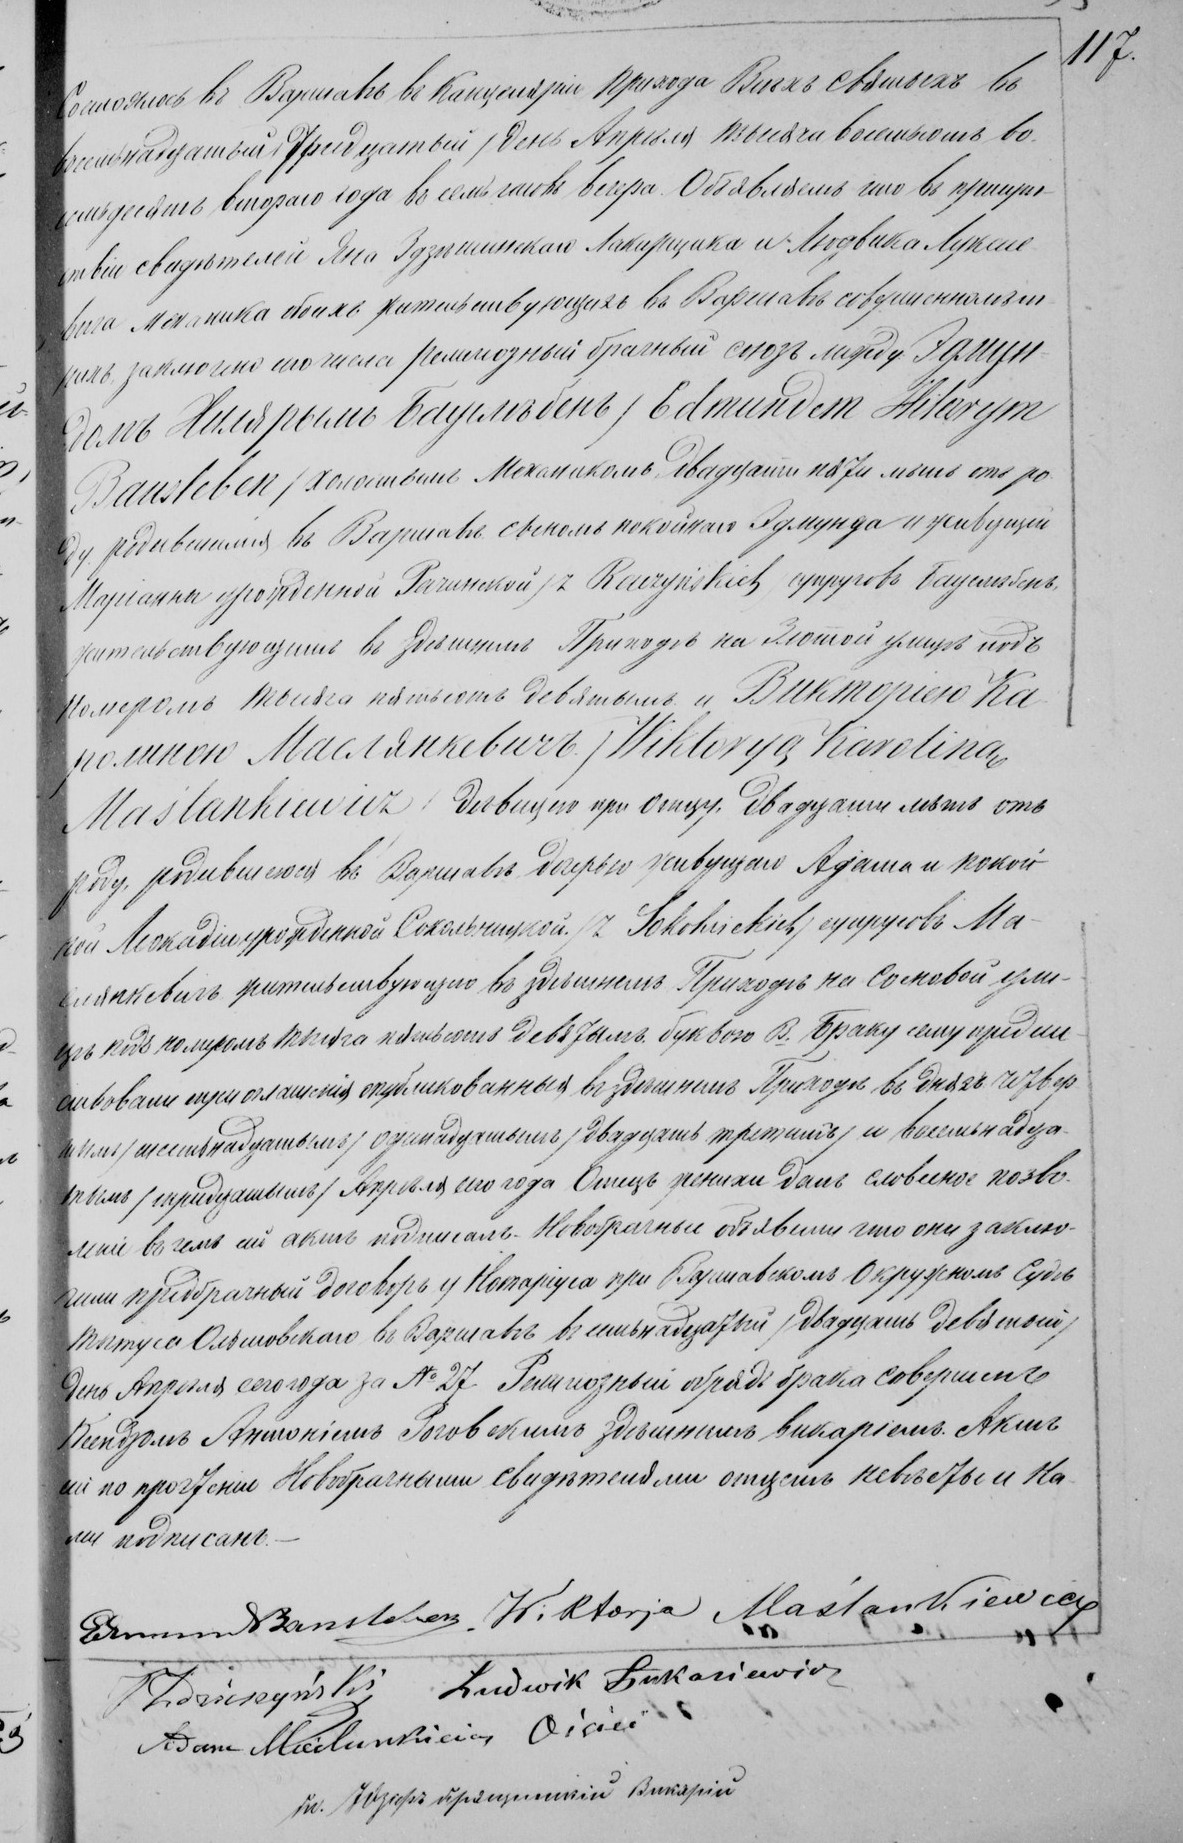 117.
Состоялось въ Варшавѣ въ Канцеляріи Прихода Всѣхъ Святыхъ въ
восемнадцатый /тридцатый/ день Апрѣля тысяча восемьсотъ во-
семьдесятъ втораго года въ семь часовъ вечера. Объявляемъ что въ присут-
ствіи свидѣтелей Яна Здзѣшинскаго Лакирщика и Людвика Лукасе-
вича Механика обоихъ жительствующихъ въ Варшавѣ совершеннолѣт-
нихъ, заключенъ сего числа религіозный брачный союзъ между Эдмун-
домъ Хиляріемъ Баузлебенъ / Edmundem Hilarym
Bausleben / холостымъ Механикомъ двадцати пяти лѣтъ отъ ро-
ду, родившимся въ Варшавѣ сыномъ покойнаго Эдмунда и живущей
Маріанны урожденной Рачинской / z Raczyńskich / супруговъ Баузлебенъ,
жительствующимъ въ здѣшнемъ Приходѣ на Злотой улицѣ подъ
номеромъ тысяча пятьсотъ девятымъ и Викторіею Ка-
ролиною Маслянкевичъ / Wiktoryą Karoliną
Maślankiewicz / дѣвицею при отцу, двадцати лѣтъ отъ
роду, родившеюся въ Варшавѣ дочерью живущаго Адама и покой-
ной Леокадіи урожденной Сокольницкой / z Sokolnickich / супруговъ Ма-
слянкевичъ жительствующею въ здѣшнемъ Приходѣ на Сосновой ули-
цѣ подъ номеромъ тысяча пятьсотъ девятымъ буквою В. Браку сему предше-
ствовали три оглашенія опубликованныя въ здѣшнемъ Приходѣ въ дняхъ четвер-
тымъ /шестнадцатымъ/ одинадцатымъ /двадцать третимъ/ и восемьнадца-
тымъ /тридцатымъ/ Апрѣля сего года Отецъ невѣсты далъ словесное позво-
леніе въ чемъ сей актъ подписалъ. Новобрачные объявили что они заклю-
чили предбрачный договоръ у Нотаріуса при Варшавскомъ Окружномъ Судѣ
Тытуса Ольшовскаго въ Варшавѣ въ семьнадцатый /двадцать девятый/
день Апрѣля сего года за № 27. Религіозный обрядъ брака совершенъ
Ксендзомъ Антоніемъ Роговскимъ здѣшнимъ викаріемъ. Актъ
сей по прочтеніи Новобрачными свидѣтелями отцемъ невѣсты и На-
ми подписанъ.—
Edmund Bausleben. Wiktorja Maślankiewicz
JZdzieszyński Ludwik Łukasiewicz
Adam Maślankiewicz Ojciec
Кс. Юзефъ Викарій